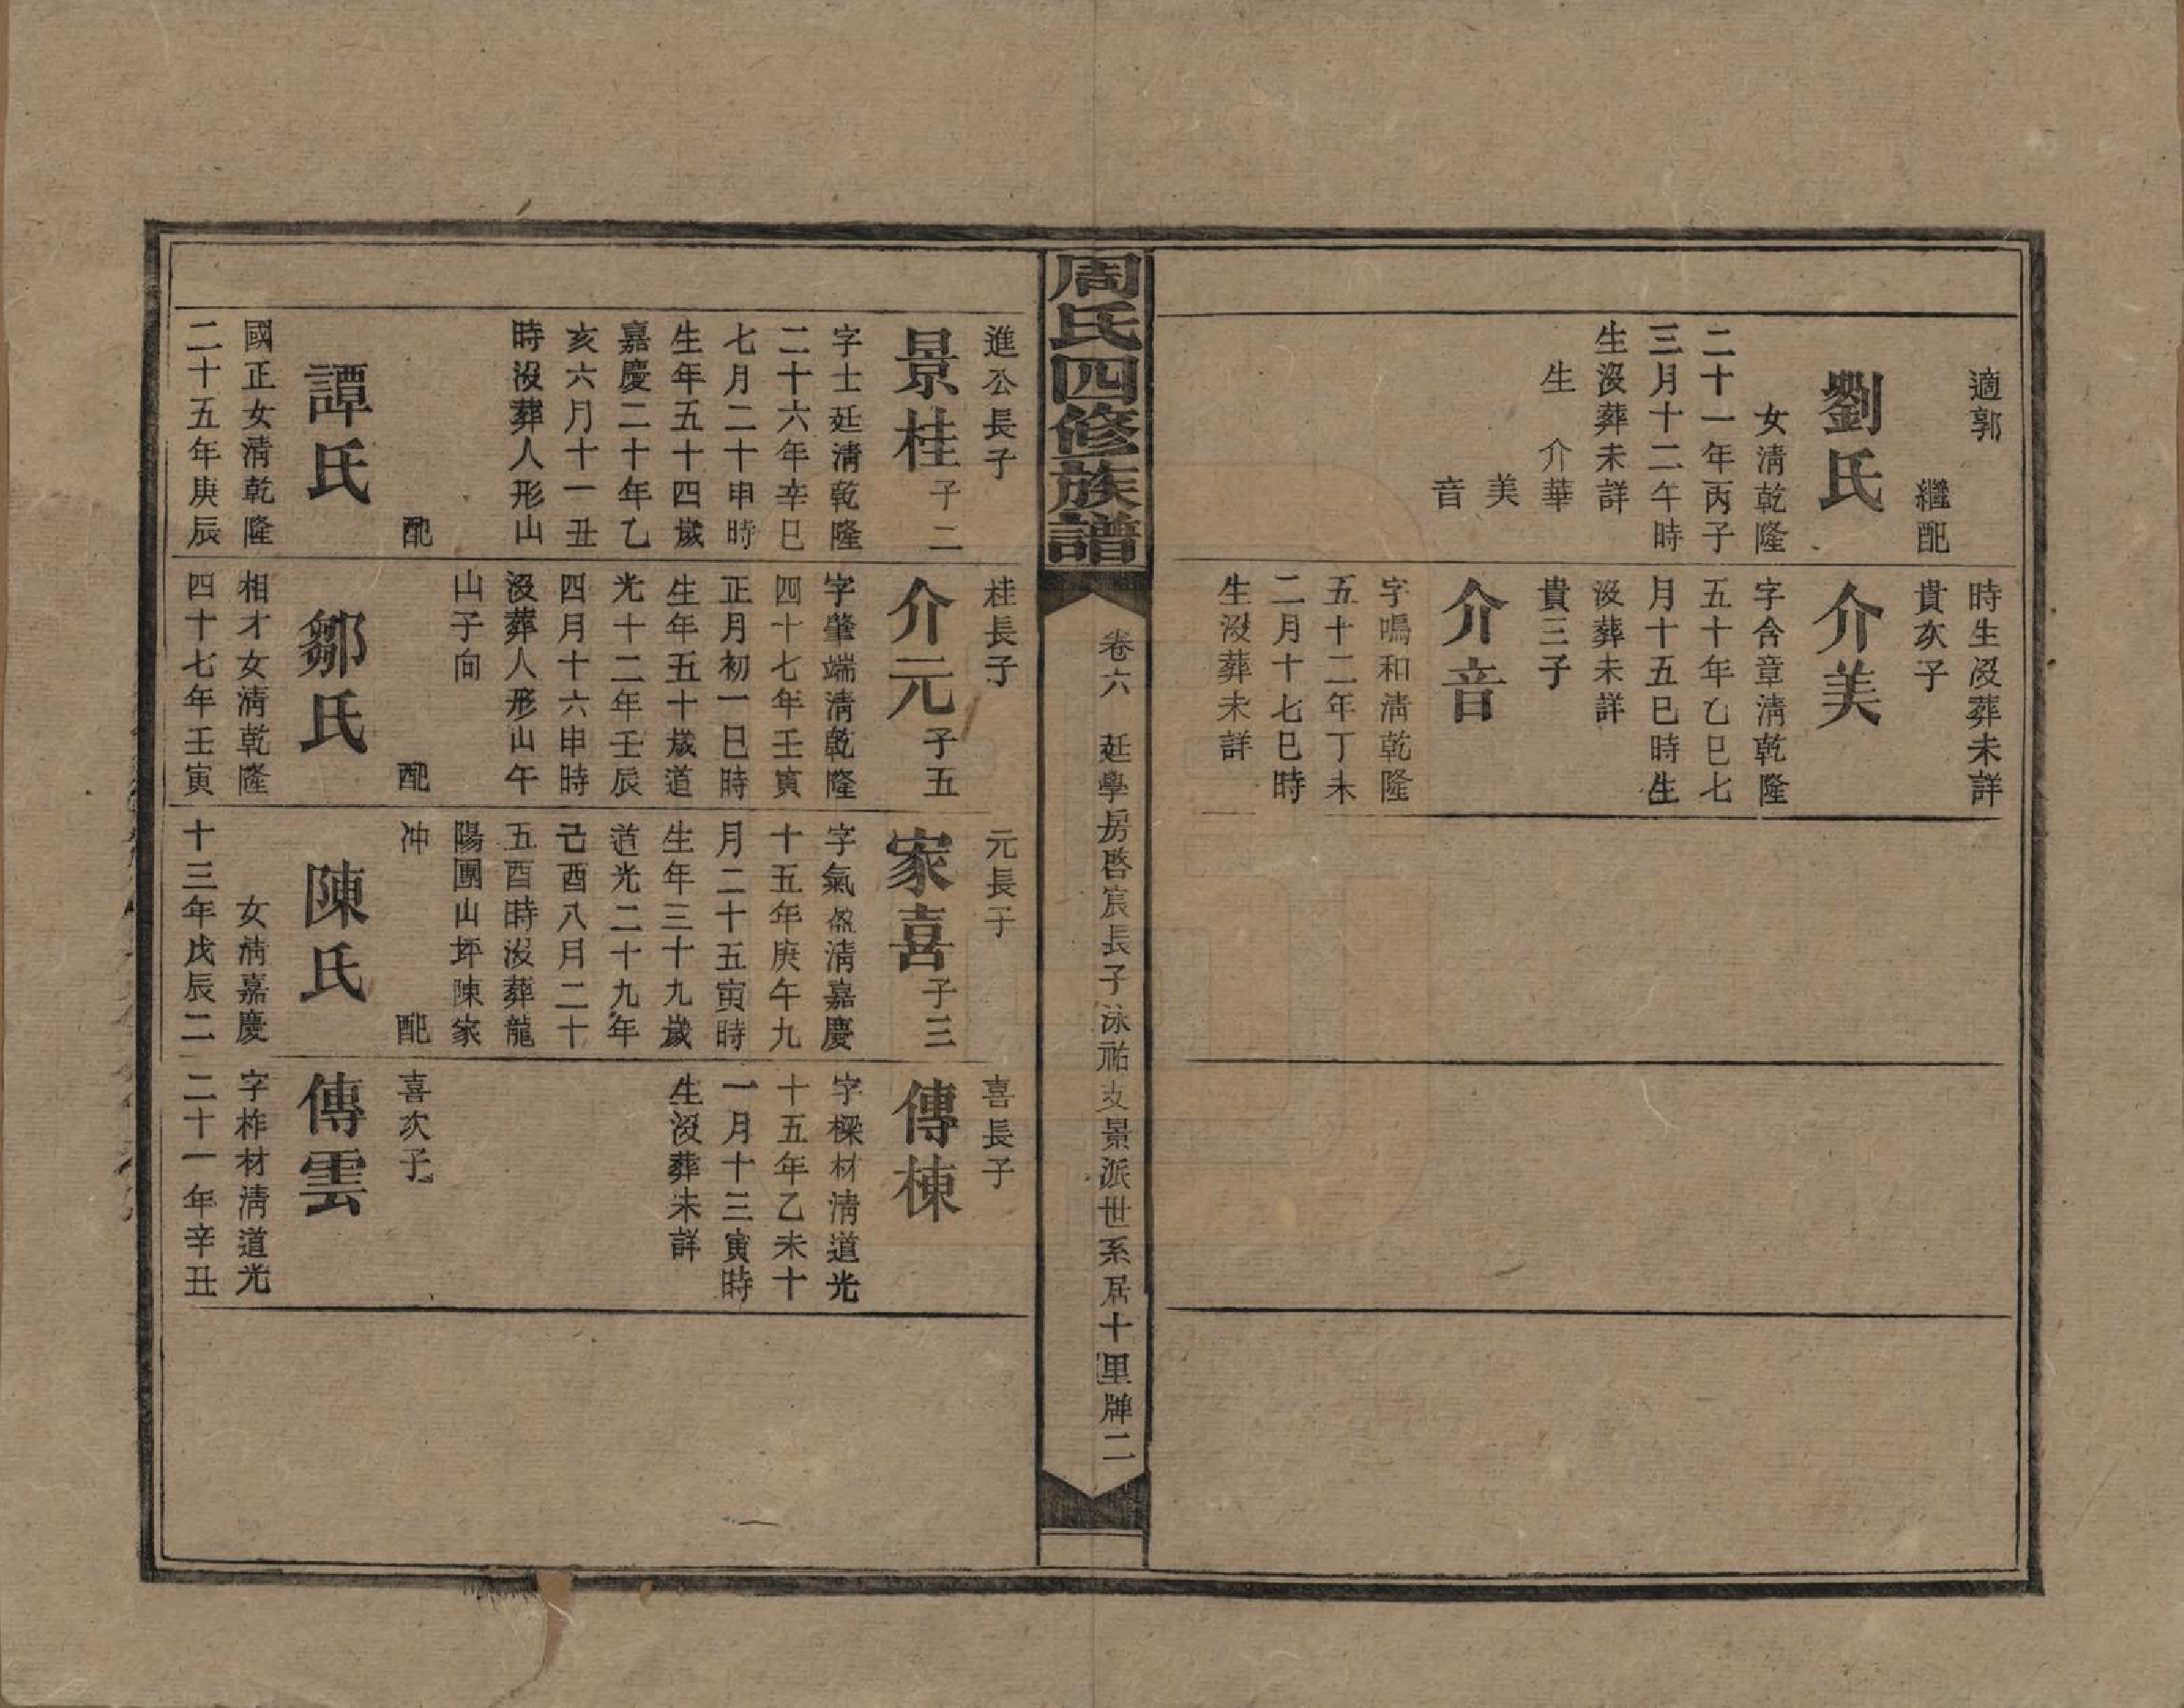 適郭
繼配
劉氏
女清乾隆
二十一年丙子
三月十二午時
生沒葬未詳
生　介華
美
音
時生沒葬未詳
貴次子
介美
字含章清乾隆
五十年乙巳七
月十五巳時生
沒葬未詳
貴三子
介音
字鳴和清乾隆
五十二年丁未
二月十七巳時
生沒葬未詳
周氏四修族譜
卷六　廷學房啓宸長子泳祐支景派世系居十里牌二
進公長子
景桂子二
字士廷清乾隆
二十六年辛巳
七月二十申時
生年五十四歲
嘉慶二十年乙
亥六月十一丑
時沒葬人形山
配
譚氏
國正女清乾隆
二十五年庚辰
桂長子
介元子五
字肇端清乾隆
四十七年壬寅
正月初一巳時
生年五十歲道
光十二年壬辰
四月十六申時
沒葬人形山午
山子向
配
鄒氏
相才女清乾隆
四十七年壬寅
元長子
家喜子三
字氣盈清嘉慶
十五年庚午九
月二十五寅時
生年三十九歲
道光二十九年
己酉八月二十
五酉時沒葬龍
陽團山坪陳家
冲
配
陳氏
女清嘉慶
十三年戊辰二
喜長子
傳棟
字樑材清道光
十五年乙未十
一月十三寅時
生沒葬未詳
喜次子
傳雲
字柞材清道光
二十一年辛丑